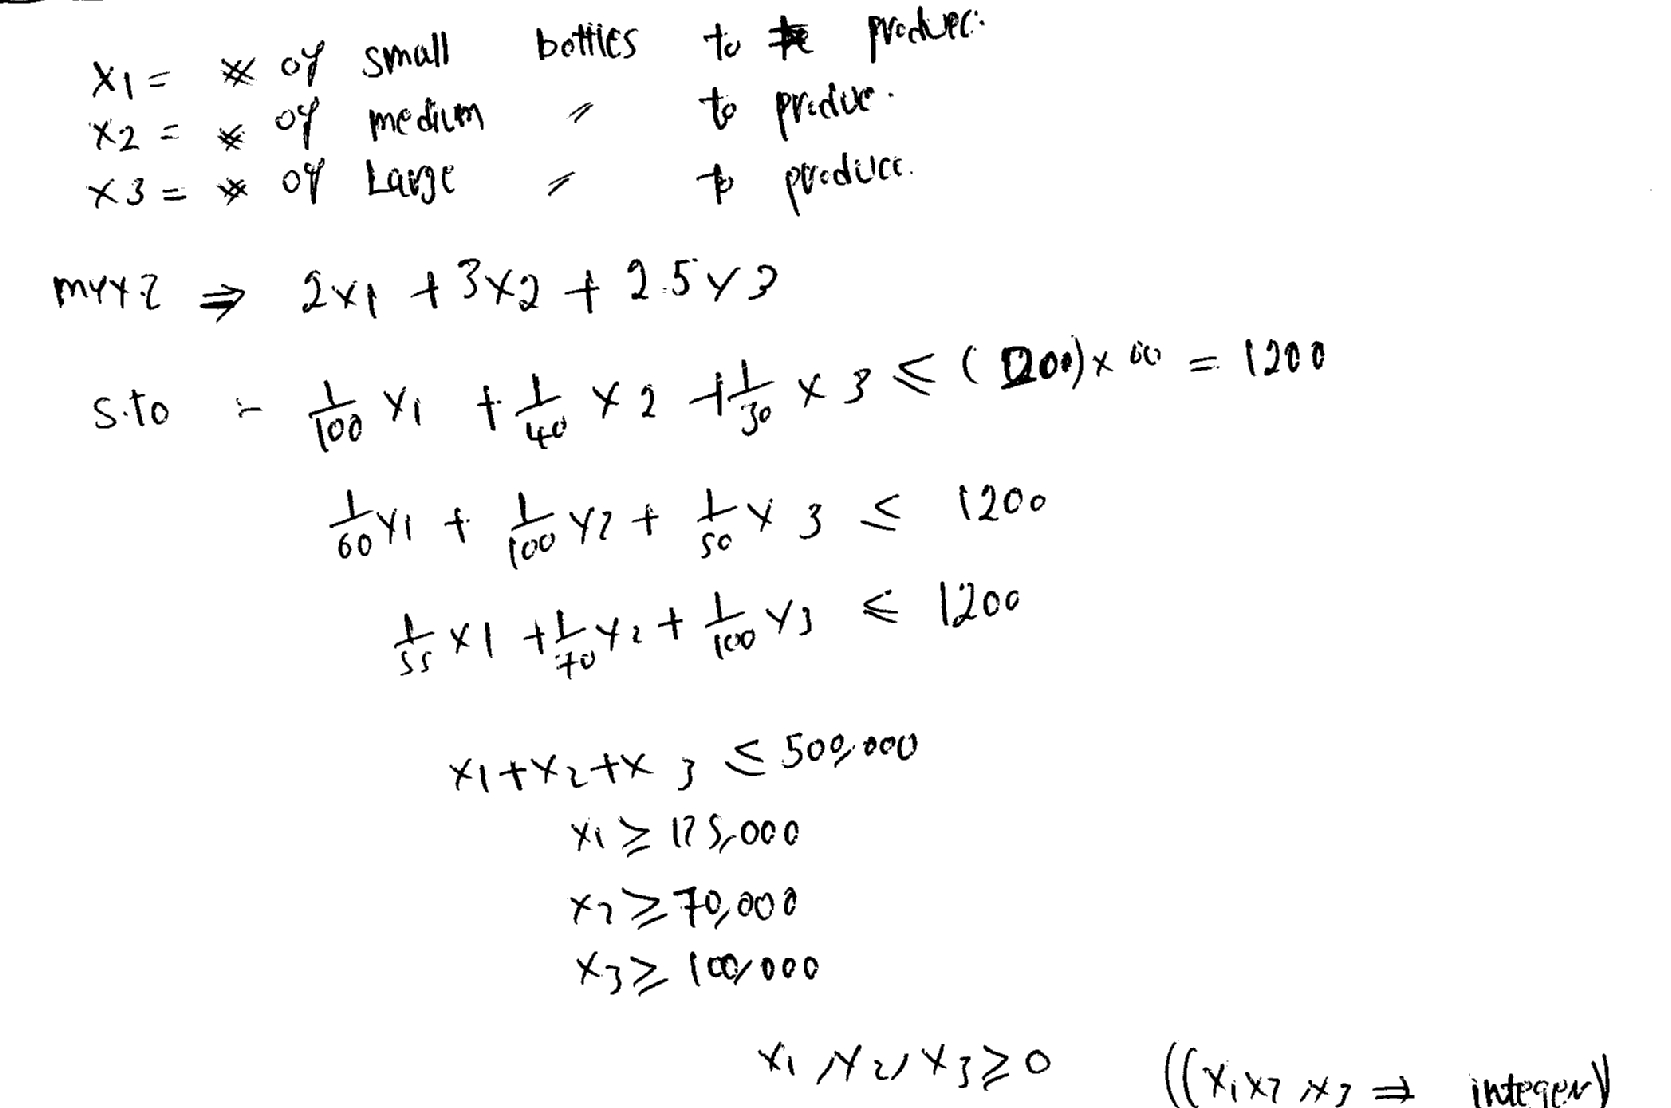 X1 = # of small bottles to produce.
X2 = # of medium 〃 to produe.
X3 = # of Large 〃 to produce.
max Z ⇒ 2x1 + 3x2 + 2.5x3
S.to :- 1/100 X1 + 1/40 X2 + 1/30 X3 ≤ (200) x 60 = 1200
1/60 X1 + 1/100 X2 + 1/50 X3 ≤ 1200
1/55 X1 + 1/70 X2 + 1/100 X3 ≤ 1200
X1+X2+X3 ≤ 500,000
X1 ≥ 175,000
X2 ≥ 70,000
X3 ≥ 100,000
X1, X2, X3 ≥ 0 ((X1, X2, X3 ⇒ integer))